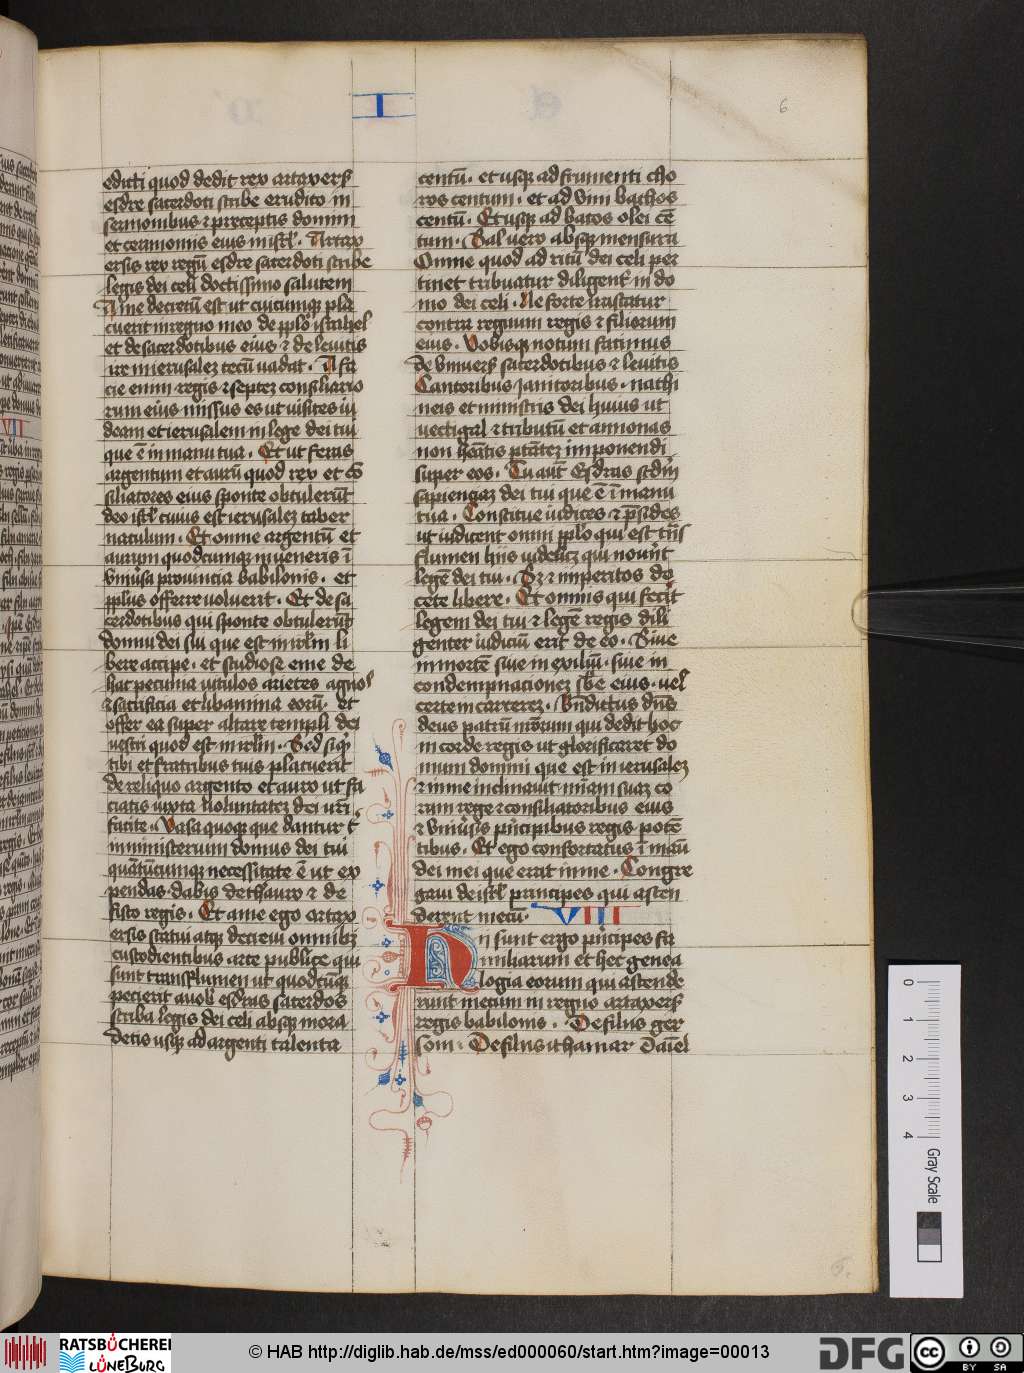 I
6
edicti quod dedit rex artaxerſ
esdre sacerdoti scribe erudito in
sermonibus ⁊ preceptis domini
et cerimoniis eius in iſrl̄. Artax
erſis rex regū esdre sacerdoti scribe
legis dei celi doctissimo salutem
A me decretū est ut cuicumqꝫ pla
cuerit in regno meo de pplo israhel
et de sacerdotibus eius ⁊ de leuitis
ire in ierusalez tecū uadat. A fa
cie enim regis ⁊ septez consiliario
rum eius missus es ut uisites iu
deam et ierusalem in lege dei tui
que ē in manu tua. Et ut feras
argentum et aurū quod rex et cō
siliatores eius sponte obtulerūt
deo isrl̄ cuius est ierusalez taber
naculum. Et omne argentū et
aurum quodcumqꝫ inueneris ī
vniūsa prouincia babilonis. et
pplus offerre uoluerit. Et de sa
cerdotibus qui sponte obtulerūt
domui dei sui que est in irlm̄ li
bere accipe. et studiose eme de
hac pecunia uitulos arietes agnos
⁊ sacrificia et libamina eorū. et
offer ea super altare templi dei
uestri quod est in irlm̄. Sed siqͥ
tibi et fratribus tuis placuerit
de reliquo argento et auro ut fa
ciatis iuxta uoluntatez dei ur̄i
facite. Vasa quoqꝫ que dantur tͥ
in ministerium domus dei tui
quātūcumqꝫ necessitate ē ut ex
pendas dabis de thauro ⁊ de
fisco regis. Et a me ego artax
ersis statui atqꝫ decreui omnibꝫ
custodientibus arce publice qui
sunt trans flumen ut quodcūqꝫ
pecierit a uob esdras sacerdos
scriba legis dei celi absqꝫ mora
detis usqꝫ ad argenti talenta
centū. et usqꝫ ad frumenti cho
ros centum. et ad vini bathos
centū. Et usqꝫ ad batos olei cē
tum. Sal uero absqꝫ mensura
Omne quod ad ritū dei celi per
tinet tribuatur diligentͥ in do
mo dei celi. Ne forte irascatur
contra regnum regis ⁊ filiorum
eius. Vobisqꝫ notum facimus
De vniuerſ sacerdotibus ⁊ leuitis
Cantoribus Janitoribus. nathi
neis et ministris dei huius ut
uectigal ⁊ tributū et annonas
non hēatis ptātez imponendi
super eos. Tu aut̄ Esdras scdm̄
sapienciaz dei tui que ē ī manu
tua. Constitue iudices ⁊ p̄sides
ut iudicent omni pplo qui est trn̄s
flumen hiis uidelicz qui nouūt
legē dei tui. Sz ⁊ imperitos do
cete libere. Et omnis qui fec̄it
legem dei tui ⁊ legē regis dili
genter iudiciū erit de eo. Siue
in mortē siue in exiliū. siue in
condempnacionez sbē eius. uel
certe in carcerez. Bn̄dictus dn̄s
deus patrū nr̄orum qui dedit hoc
in corde regis ut glorificaret do
mum domini que est in ierusalez
⁊ in me inclinauit miām suaz co
ram rege ⁊ consiliatoribus eius
⁊ vniūsis pͥncipibus regis potē
tibus. Et ego confortatus ī māu
dei mei que erat in me. Congre
gaui de isrl̄ principes qui ascen
derent mecū.
VIII
Hii sunt ergo pͥncipes fa
miliarum et hec genea
logia eorum qui ascende
runt mecum in regno artaxerſ
regis babilonis. De filiis ger
som. De filiis ithamar Daīel
6.
0 1 2 3 4
Gray Scale
RATSBÜCHEREI
LÜNEBURG
© HAB http://diglib.hab.de/mss/ed000060/start.htm?image=00013
DFG
cc BY SA